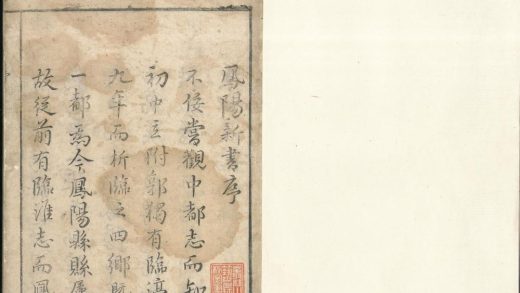 鳳陽新書序
不佞嘗觀中都志而知
初沖立附郭獨有臨濠
九年而析臨之四鄉
一都為今鳳陽縣縣
故從前有臨淮志而鳳